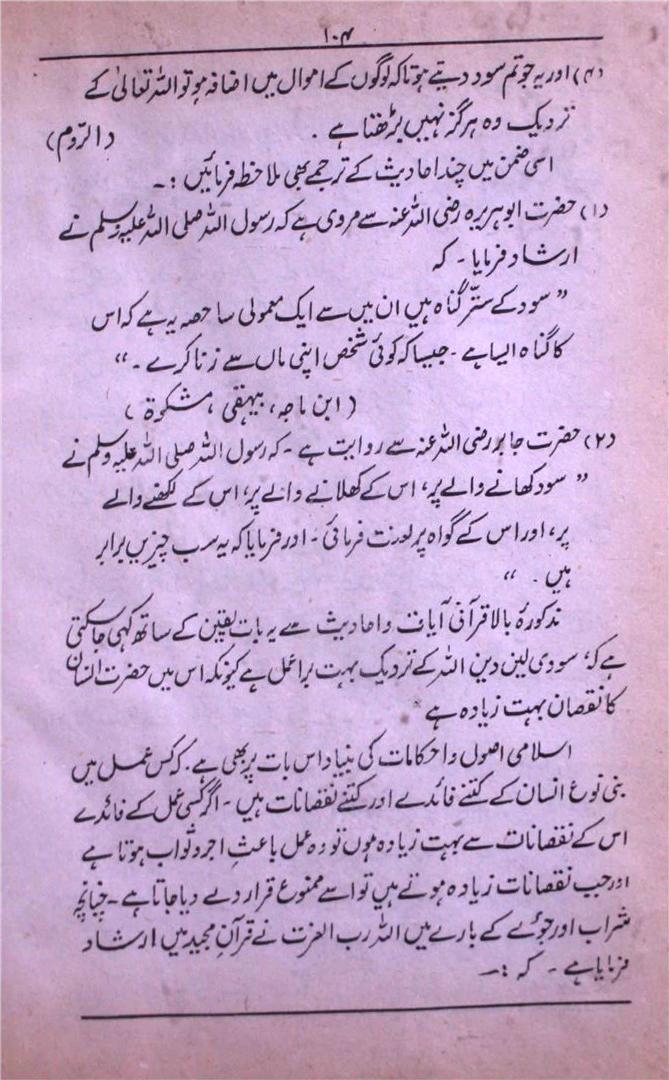 ۱۰۴
(۴) اور یہ جو تم سود دیتے ہو تاکہ لوگوں کے اموال میں اضافہ ہو تو اللہ تعالیٰ کے
نزدیک وہ ہرگز نہیں بڑھتا ہے ۔ (الرّوم)
اسی ضمن میں چند احادیث کے ترجمے بھی ملاحظہ فرمائیں :۔
(۱) حضرت ابو ہریرہ رضی اللہ عنہ سے مروی ہے کہ رسول اللہ صلی اللہ علیہ وسلم نے
ارشاد فرمایا ۔ کہ
” سود کے ستّر گناہ ہیں ان میں سے ایک معمولی سا حصہ یہ ہے کہ اس
کا گناہ ایسا ہے ۔ جیسا کہ کوئی شخص اپنی ماں سے زنا کرے ۔ “
( ابن ماجہ ، بیہقی ، مشکوۃ )
(۲) حضرت جابر رضی اللہ عنہ سے روایت ہے ۔ کہ رسول اللہ صلی اللہ علیہ وسلم نے
” سود کھانے والے پر، اس کے کھلانے والے پر، اس کے لکھنے والے
پر، اور اس کے گواہ پر لعنت فرمائی ۔ اور فرمایا کہ یہ سب چیزیں برابر
ہیں ۔ “
مذکورۂ بالا قرآنی آیات و احادیث سے یہ بات یقین کے ساتھ کہی جا سکتی
ہے کہ، سودی لین دین اللہ کے نزدیک بہت برا عمل ہے کیونکہ اس میں حضرت انسان
کا نقصان بہت زیادہ ہے
اسلامی اصول و احکامات کی بنیاد اس بات پر بھی ہے ۔ کہ کس عمل میں
بنی نوع انسان کے کتنے فائدے اور کتنے نقصانات ہیں ۔ اگر کسی عمل کے فائدے
اس کے نقصانات سے بہت زیادہ ہوں تو وہ عمل باعثِ اجر و ثواب ہوتا ہے
اور جب نقصانات زیادہ ہوتے ہیں تو اسے ممنوع قرار دے دیا جاتا ہے ۔ چنانچہ
شراب اور جوئے کے بارے میں اللہ رب العزت نے قرآنِ مجید میں ارشاد
فرمایا ہے ۔ کہ :۔